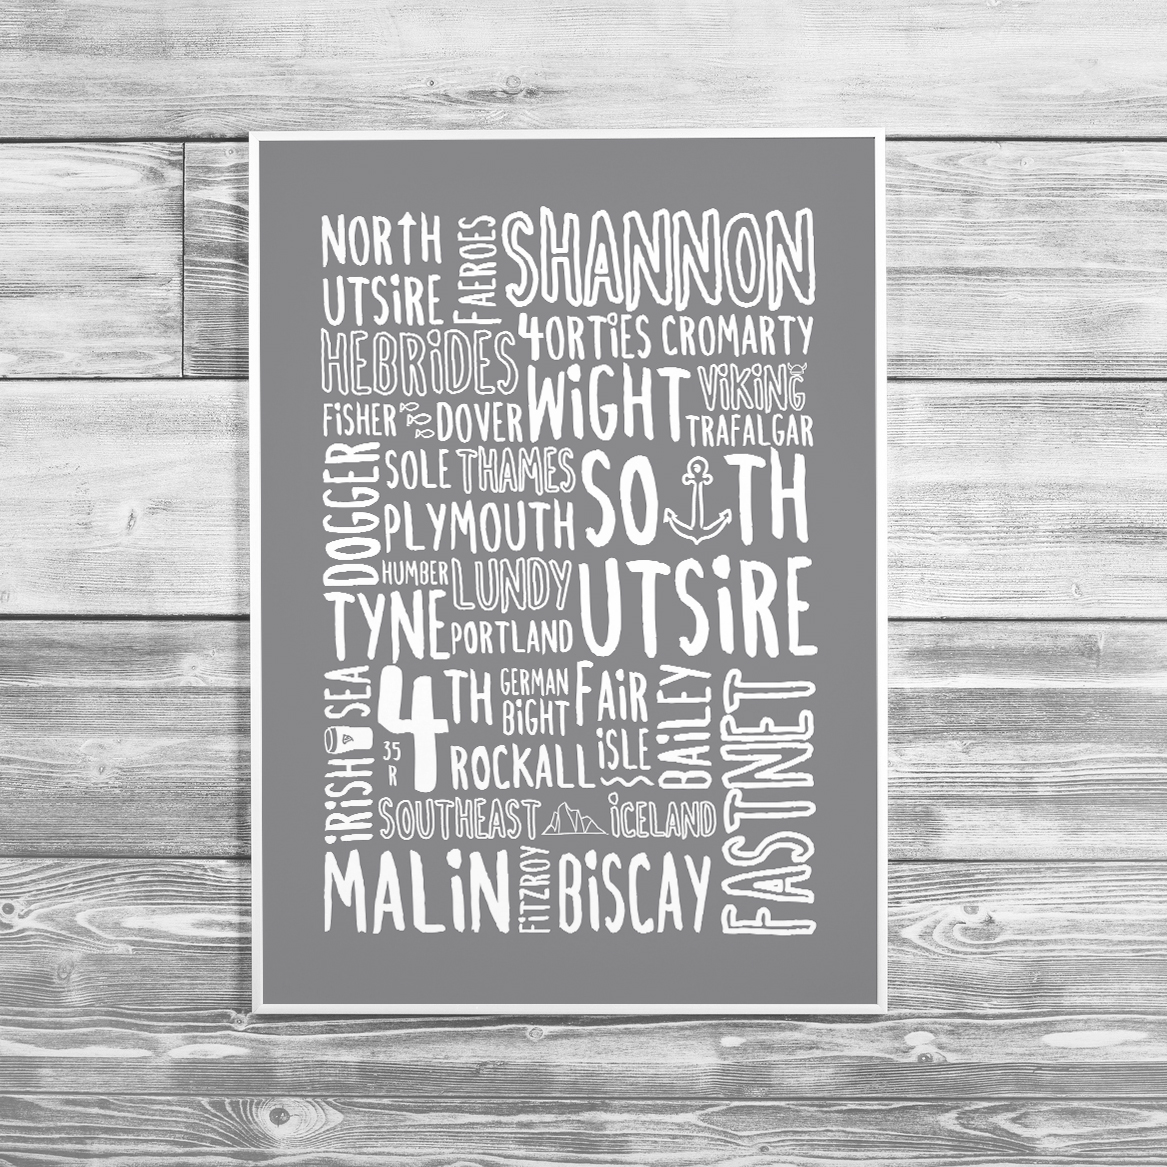 NORTH
UTSiRE
FAEROES
SHANNON
HEBRiDES
4ORTiES CROMARTY
WiGHT
ViKiNG
FiSHER
DOVER
TRAFALGAR
DOGGER
SOLE THAMES
SO TH
PLYMOUTH
HUMBER
LUNDY
UTSiRE
TYNE
PORTLAND
iRiSH SEA
4TH
GERMAN
BiGHT
FAiR
iSLE
BAiLEY
FASTNET
35
R
ROCKALL
SOUTHEAST iCELAND
MALiN
FiTZROY
BiSCAY